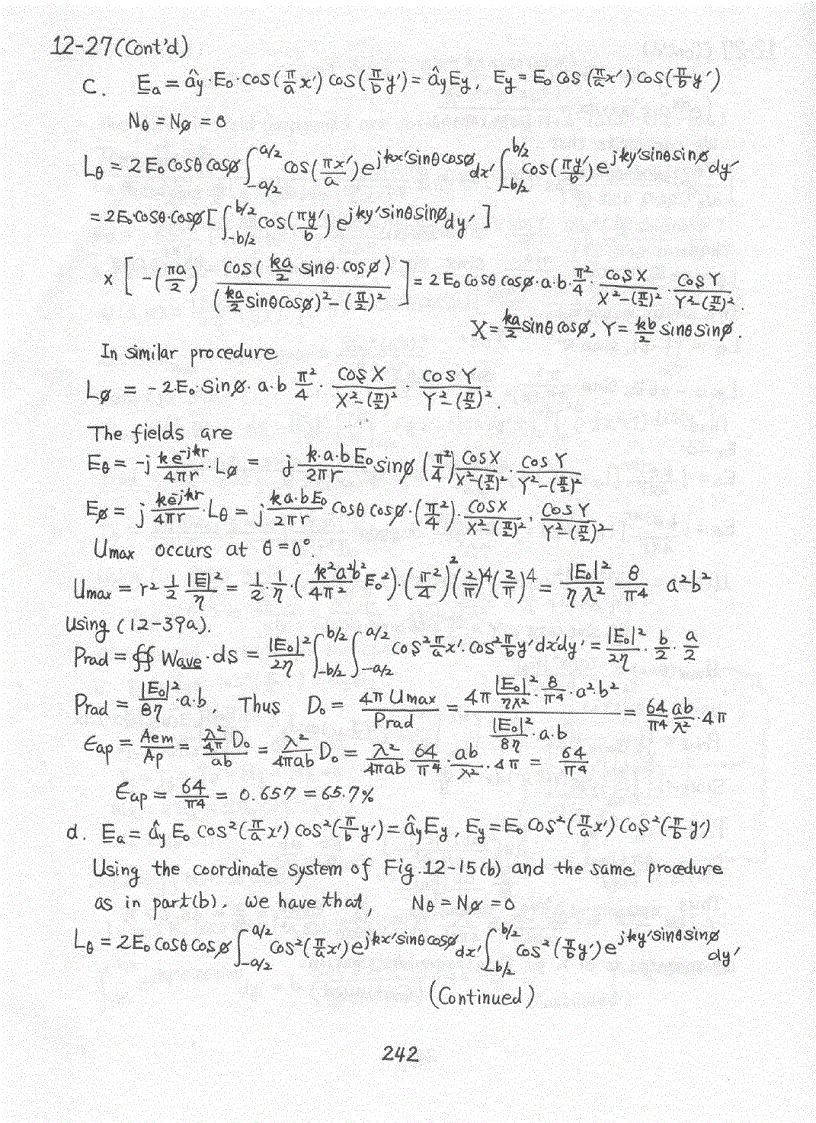 12-27 (Cont'd)
c. E_a = â_y·E_0·cos(π/a x') cos(π/b y') = â_y E_y, E_y = E_0 cos(π/a x') cos(π/b y')
N_θ = N_ø = 0
L_θ = 2E_0 cosθ cosø ∫_{-a/2}^{a/2} cos(πx'/a) e^{jkx'sinθcosø} dx' ∫_{-b/2}^{b/2} cos(πy'/b) e^{jky'sinθsinø} dy'
= 2E_0·cosθ·cosø [∫_{-b/2}^{b/2} cos(πy'/b) e^{jky'sinθsinø} dy']
x [-(πa/2) cos(ka/2 sinθ·cosø) / ((ka/2 sinθcosø)² - (π/2)²)] = 2E_0 cosθ cosø·a·b·π²/4 · cosX/(X²-(π/2)²) · cosY/(Y²-(π/2)²).
X = ka/2 sinθ cosø, Y = kb/2 sinθ sinø.
In similar procedure
L_ø = -2E_0·sinø·a·b π²/4 · cosX/(X²-(π/2)²) · cosY/(Y²-(π/2)²).
The fields are
E_θ = -j ke^{-jkr}/4πr · L_ø = j k·a·b E_0/2πr sinø (π²/4) cosX/(X²-(π/2)²) · cosY/(Y²-(π/2)²)
E_ø = j ke^{-jkr}/4πr · L_θ = j ka·bE_0/2πr cosθ cosø·(π²/4)·cosX/(X²-(π/2)²) · cosY/(Y²-(π/2)²)
Umax occurs at θ = 0°.
Umax = r² 1/2 |E|²/η = 1/2 1/η·(k²a²b²/4π² E_0²)·(π²/4)²(2/π)⁴(2/π)⁴ = |E_0|²/ηλ² 8/π⁴ a²b²
Using (12-39a).
Prad = ∯ Wave·ds = |E_0|²/2η ∫_{-b/2}^{b/2} ∫_{-a/2}^{a/2} cos² π/a x'·cos² π/b y' dx'dy' = |E_0|²/2η · b/2 · a/2
Prad = |E_0|²/8η ·a·b, Thus D_0 = 4πUmax/Prad = (4π |E_0|²/ηλ² · 8/π⁴ ·a²b²)/(|E_0|²/8η ·a·b) = 64/π⁴ ab/λ² ·4π
ε_ap = Aem/Ap = (λ²/4π D_0)/ab = λ²/4πab D_0 = λ²/4πab 64/π⁴ · ab/λ² ·4π = 64/π⁴
ε_ap = 64/π⁴ = 0.657 = 65.7%
d. E_a = â_y E_0 cos²(π/a x') cos²(π/b y') = â_y E_y, E_y = E_0 cos²(π/a x') cos²(π/b y')
Using the coordinate system of Fig. 12-15(b) and the same procedure
as in part(b), we have that, N_θ = N_ø = 0
L_θ = 2E_0 cosθ cosø ∫_{-a/2}^{a/2} cos²(π/a x') e^{jkx'sinθcosø} dx' ∫_{-b/2}^{b/2} cos²(π/b y') e^{jky'sinθsinø} dy'
(Continued)
242